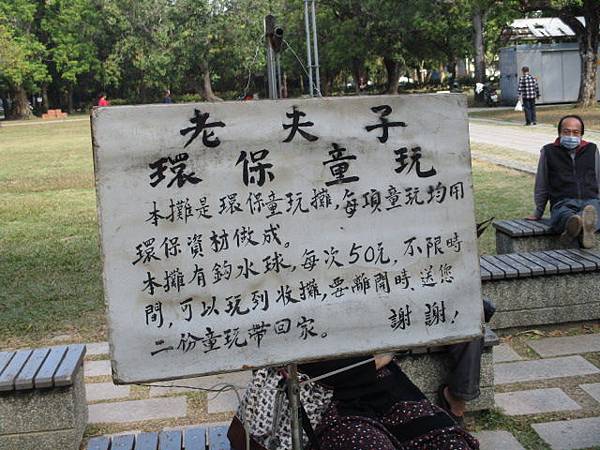 老夫子
環保童玩
本攤是環保童玩攤,每項童玩均用
環保資材做成。
本攤有釣水球,每次50元,不限時
間,可以玩到收攤,要離開時,送您
二份童玩帶回家。 謝謝!